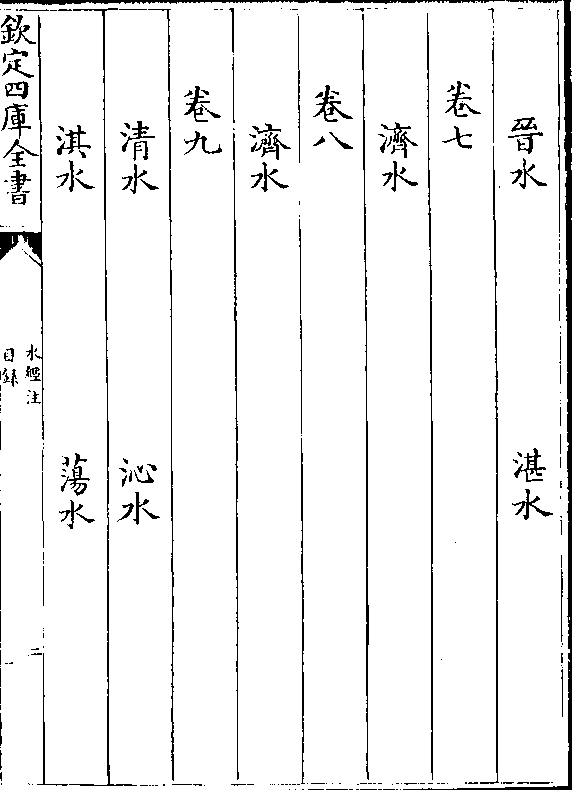 晉水 湛水
卷七
濟水
卷八
濟水
卷九
清水 沁水
淇水 蕩水
欽定四庫全書
水經注
目錄
二